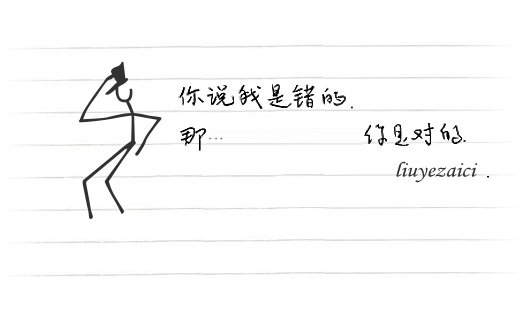 你说我是错的.
那… 你是对的.
liuyezaici .